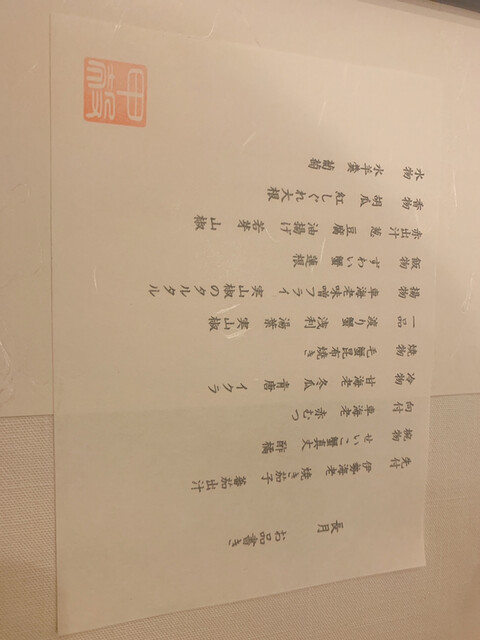 長月
お品書き
先付 伊勢海老 焼き茄子 蕃茄出汁
椀物 せいこ蟹真丈 酢橘
向付 車海老 赤むつ
冷物 甘海老 冬瓜 青唐 イクラ
焼物 毛蟹昆布焼き
一品 渡り蟹 浅利 湯葉 実山椒
揚物 車海老味噌フライ 実山椒のタルタル
飯物 ずわい蟹 蓮根
赤出汁 葱 豆腐 油揚げ 若芽 山椒
香物 胡瓜 紅しぐれ大根
水物 水羊羹 葡萄
甲殻